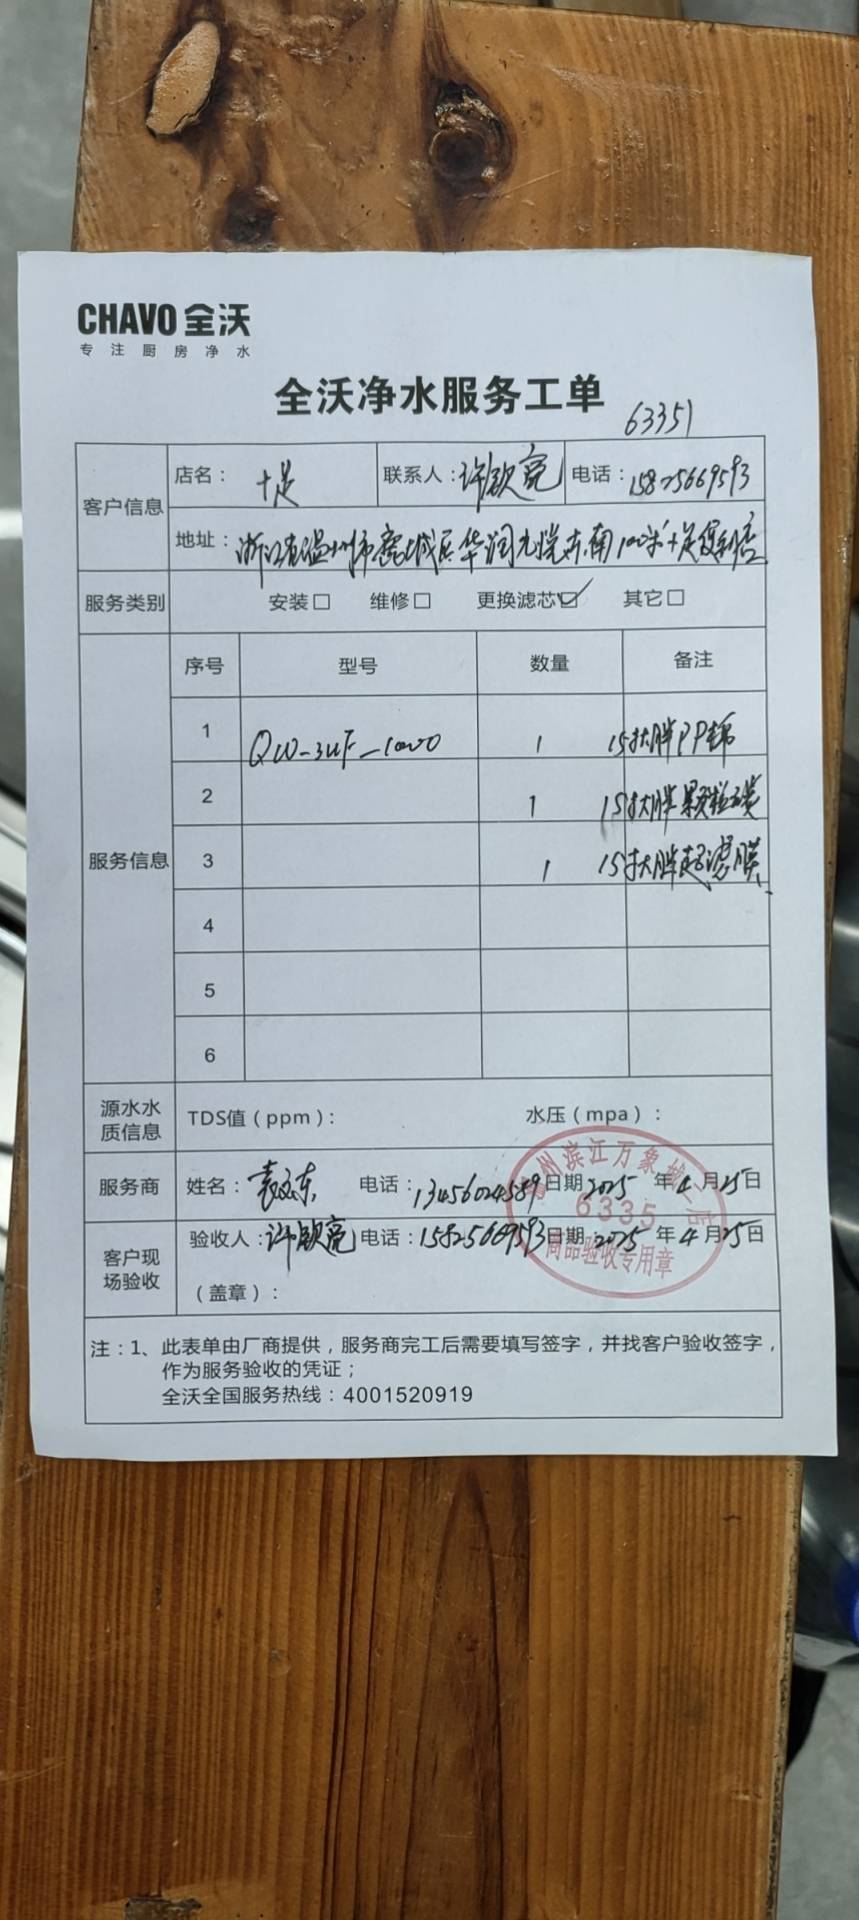 CHAVO 全沃
专注厨房净水
全沃净水服务工单
63351
客户信息 店名：十足 联系人：许欽亮 电话：15825669593
地址：浙江省温州市鹿城区华润 东南100米十足便利店
服务类别 安装□ 维修□ 更换滤芯☑ 其它□
服务信息 序号 型号 数量 备注
1 QW-3UF-1000 1 15寸大胖PP棉
2 1 15寸大胖颗粒碳
3 1 15寸大胖超滤膜
4
5
6
源水水质信息 TDS值（ppm）： 水压（mpa）：
服务商 姓名：袁 东 电话：13456024589 日期 2025 年 4 月 25 日
客户现场验收 验收人：许欽亮 电话：15825669593 日期 2025 年 4 月 25 日
（盖章）：
州滨江万象城二店
6335
商品验收专用章
注：1、此表单由厂商提供，服务商完工后需要填写签字，并找客户验收签字，
作为服务验收的凭证；
全沃全国服务热线：4001520919